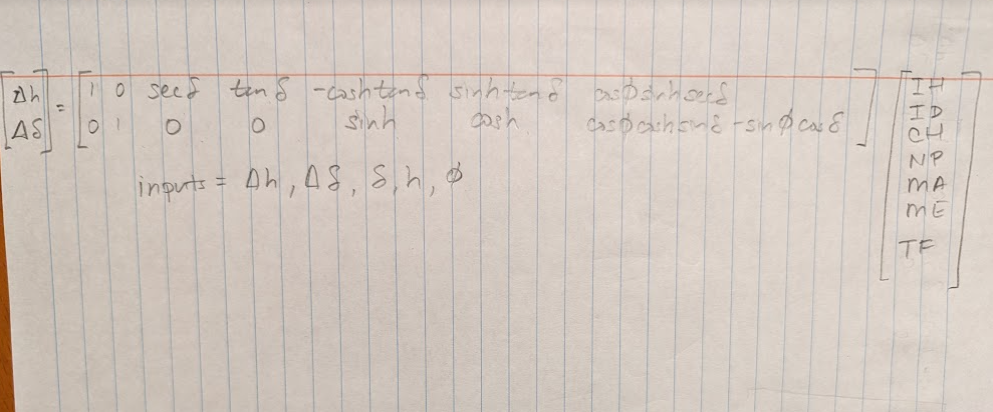 Δh = 1 0 secδ tanδ -coshtanδ sinhtanδ cosϕsinhsecδ IH
Δδ 0 1 0 0 sinh cosh cosϕcoshsinδ-sinϕcosδ ID
CH
NP
inputs = Δh, Δδ, δ, h, ϕ MA
ME
TF